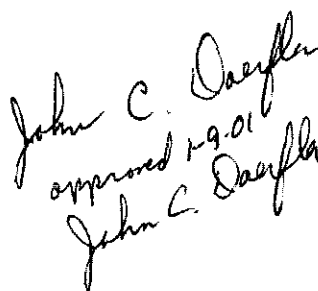 John C. Doerfler
approved 1-9-01
John C. Doerfler